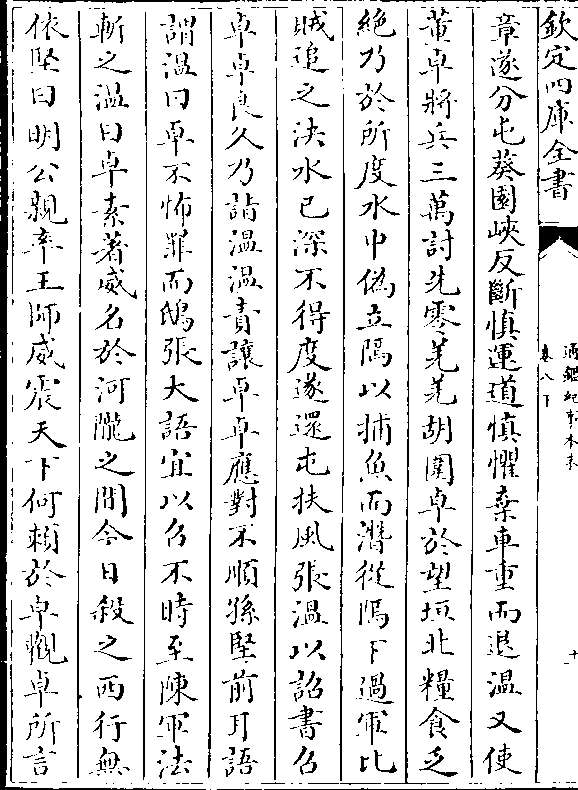 欽定四庫全書
通鑑紀事本末
卷八下
十
章遂分屯葵園峽反斷慎運道慎懼棄車重而退溫又使
董卓將兵三萬討先零羌羌胡圍卓於望垣北糧食乏
絶乃於所度水中偽立隝以捕魚而潛從隝下過軍比
賊追之決水已深不得度遂還屯扶風張溫以詔書召
卓卓良久乃詣溫溫責讓卓卓應對不順孫堅前耳語
謂溫曰卓不怖罪而鴟張大語宜以召不時至陳軍法
斬之溫曰卓素著威名於河隴之間今日殺之西行無
依堅曰明公親率王師威震天下何賴於卓觀卓所言